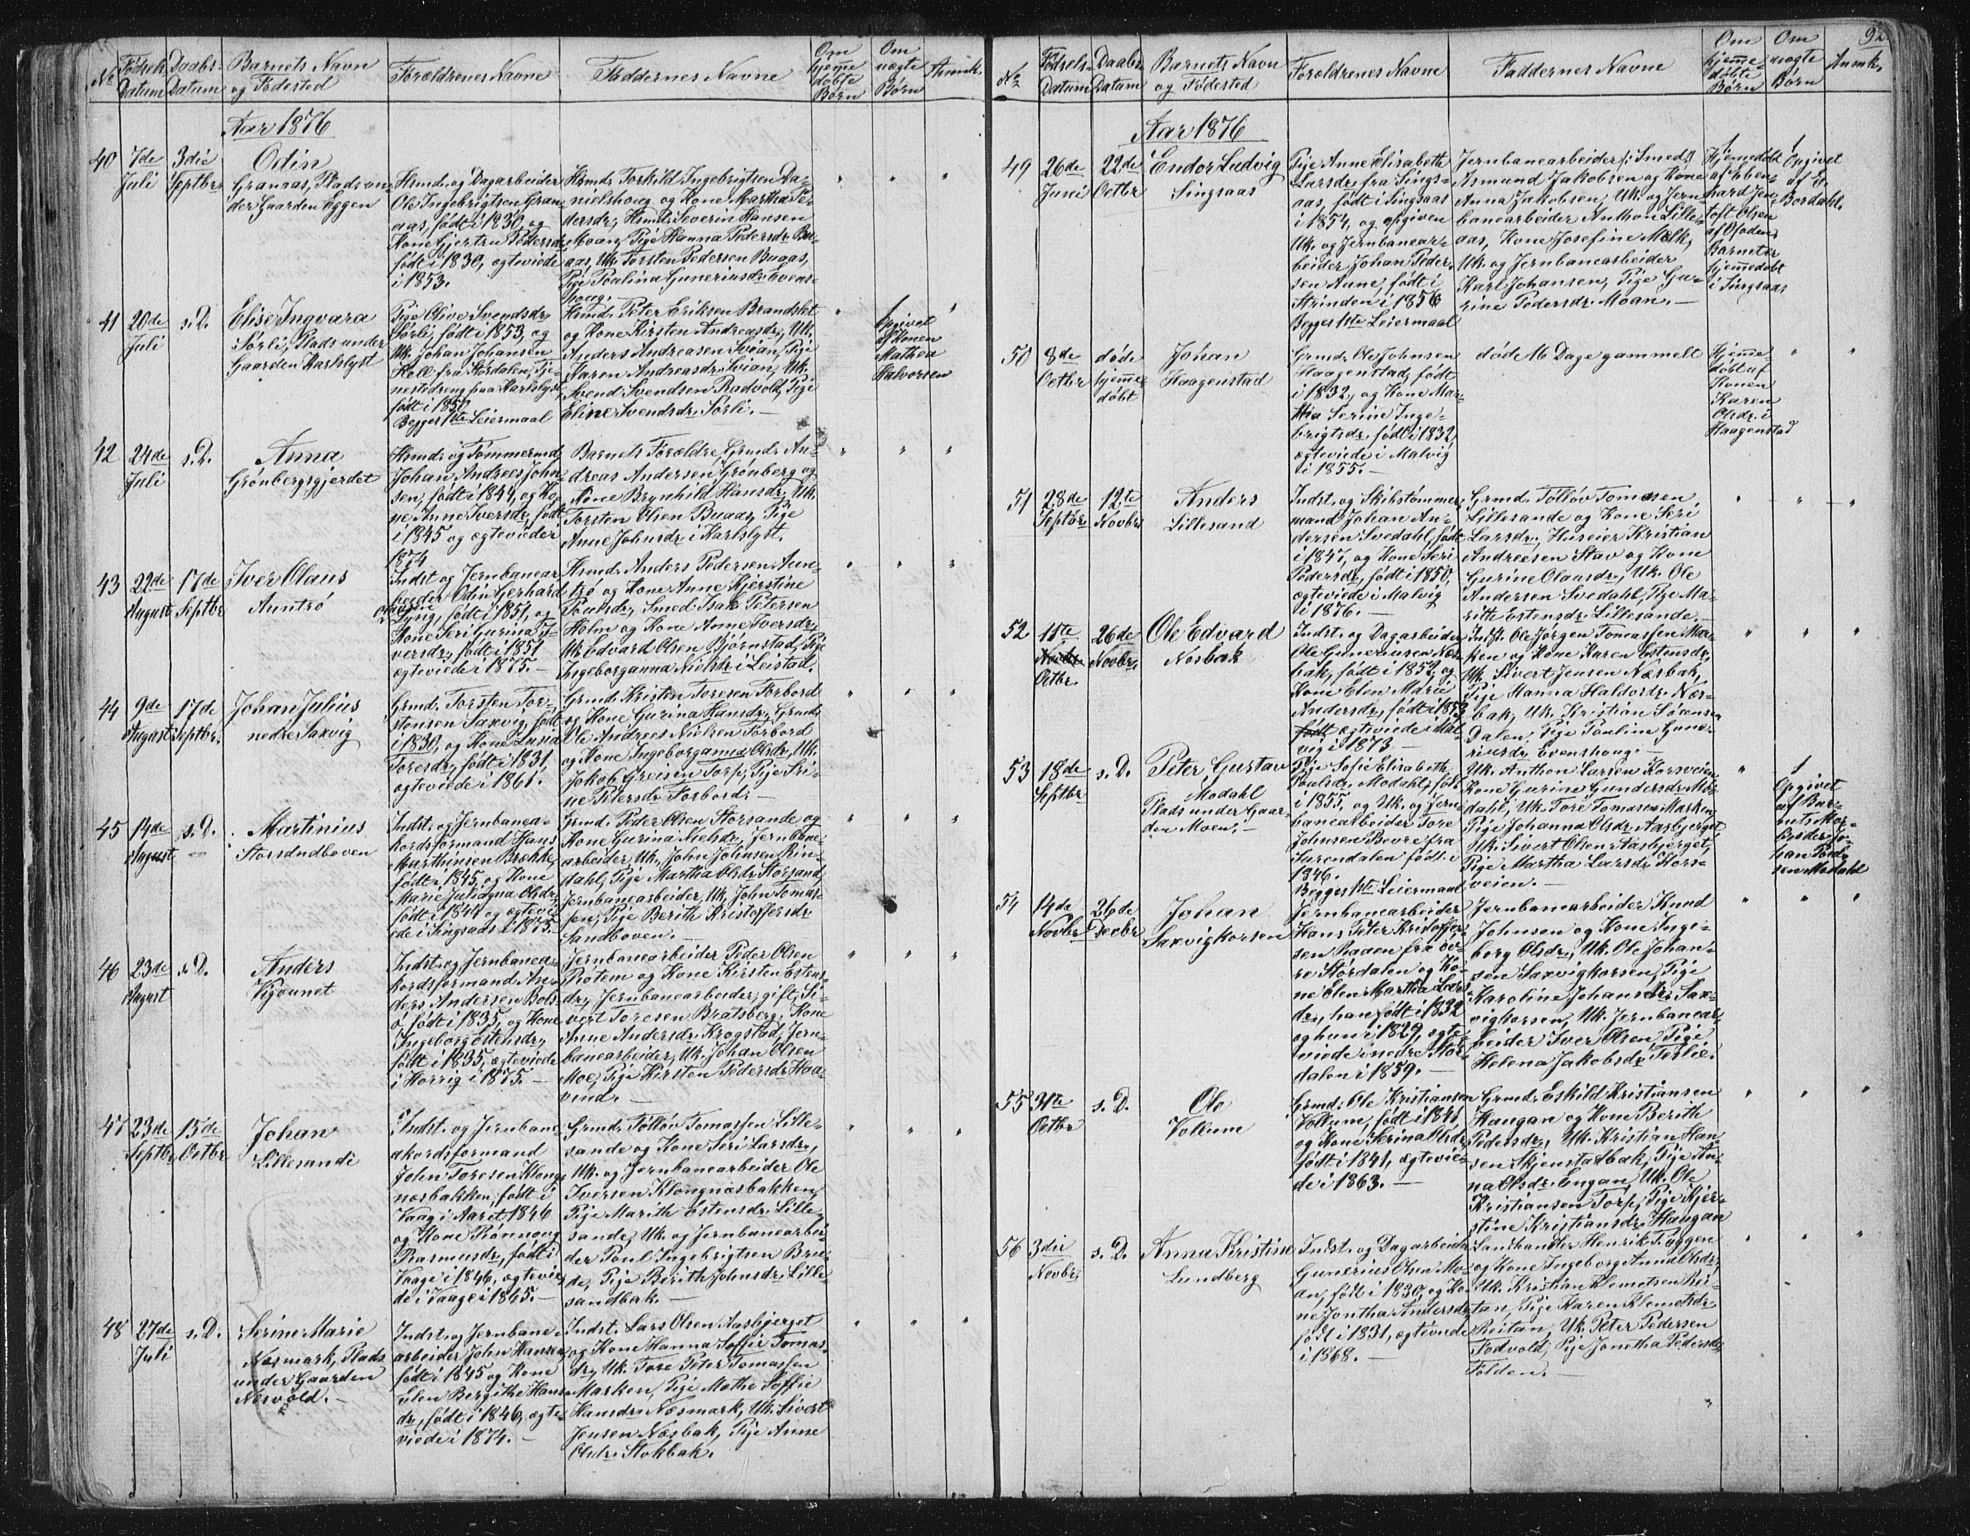 No
Fødsels Datum
Daabs Datum
Barnets Navn og Fødested
Forældrenes Navne
Faddernes Navne
Om hjemedøbte Børn
Om uægte Børn
Anmk.
Aar 1876
40
7de Juli
3die Septbr
Odin
Granaas, Plads under Gaarden Eggen
Hmd. og Dagarbeider
Ole Ingebrigtsen Granaas, født i 1830, og
Kone Gjertru Pedersdr
født i 1830, egteviede
i 1853.
Hmd. Torkild Ingebrigtsen Danielshoug og Kone Martha Pedersdr, Hmd. Severin Hansen
Moan, Pige Hanna Pedersdr Buaas, Uk. Torsten Pedersen Buaas,
Pige Paulina Guneriusdr Evenshoug.
41
20de Juli
s. D.
Elise Ingvara
Sørli, Plads under
Gaarden Karlslyst
Pige Olive Svendsdr
Sørli, født i 1853, og
Uk. Johan Johansen
født i
Begges 1ste Leiermaal
Hmd. Peter Eriksen Brandslet
og Kone Kirsten Andreasdr, Uk.
Anders Andreasen Svian, Pige
Karen Andreasdr Svian, Uk.
Svend Svendsen Radvold, Pige
Eline Svendsdr Sørli.
Opgivet af Konen Mathea Halvorsen
42
24de Juli
s. D.
Anna
Grønbergsgjerdet
Hmd. og Tømmermd.
Johan Andreas Johnsen, født i 1844, og Kone Anne Iversdr, født
i 1845 og egteviede
1874
Barnets Forældre Grmd. Andreas Andersen Grønberg og
Kone Brynhild Hansdr, Uk.
Torsten Olsen Buaas, Pige
Anne Johnsdr i Karlslyst.
43
22de August
17de Septbr
Iver Olaus
Auntrø
Indst. og Jernbanearbeider Odin Gerhard
Lyng, født i 1851, og
Kone Seri Gurina Iversdr, født i 1851
egteviede i 1875.
Hmd. Anders Pedersen Auntrø og Kone Anne Kjerstine
Poulsdr, Smed Isak Petersen
Holm og Kone Anne Iversdr,
Uk. Edvard Olsen Bjørnstad, Pige
Ingeborganna Nielsdr i Leistad.
44
9de August
17de Septbr.
Johan Julius
nedre Saxvig
Grmd. Torsten Torstensen Saxvig, født
i 1830, og Kone Lusia
Toresdr, født i 1831
egteviede i 1861.
Grmd. Kristin Toresen Forbord
og Kone Gurina Hansdr, Grmd.
Ole Andreas Nielsen Forbord
og Kone Ingeborganna Olsdr, Uk.
Jakob Greisen Torp, Pige Trine Petersdr Forbord.
45
14de August
s. D.
Martinius
Storsandboven
Indst. og Jernbaneakordsformand Hans
Marthinsen Brække
født 1845, og Kone
Marie Julianna Olsdr,
født i 1844 og egteviede i Singsaas i 1875.
Grmd. Peder Olsen Storsande og
Kone Gurina Nielsdr, Jernbanearbeider, Uk. John Johnsen Rindahl, Pige Martha Olsdr Storsand,
Jernbanearbeider, Uk. John Tomassen, Pige Berith Kristoffersdr
Sandboven.
46
23de August
s. D.
Anders
Vigvunet
Indst. og Jernbaneakordsformand Anders Andersen
født i 1835, og Kone
Ingeborg Østensdr,
født i 1835, egteviede
i Horrig i 1875.
Jernbanearbeider Peder Olsen
Rotem og Kone Kirsten Estensdr, Jernbanearbeider, gift, Sivert Toresen Bratsberg, Kone
Anne Andersdr Krogstad, Jernbanearbeider, Uk. Johan Olsen
Moe, Pige Kirsten Pedersdr Haavind.
47
23de Septbr
15de Octbr
Johan
Lillesande
Indst. og Jernbaneakordsformand
John Toresen Klongnæsbakken, født i
Vaag i Aaret 1846
og Kone Rønnaug
Rasmusdr, født i
Vaage i 1846, egteviede i Vaage i 1865.
Grmd. Tølløv Tomassen Lillesande og Kone Seri Larsdr,
Uk. og Jernbanearbeider Ole
Iversen Klongnæsbakken,
Pige Marith Estensdr Lillesande, Uk. og Jernbanearbeider Poul Ingebrigtsen Brude, Pige Berith Johnsdr Lillesandbak.
48
27de Juli
s. D.
Serine Marie
Næsmark, Plads
under Gaarden
Nesvold.
Indst. og Jernbanearbeider John Hansen
født i 1845 og Kone
Elen Bergithe Hansdr, født i 1846, egteviede i 1874.
Indst. Lars Olsen Aasbjerget
og Kone Hanna Soffie Tomasdr, Uk. Tore Peter Tomassen
Marken, Pige Mathe Soffie
Hansdr Næsmark, Uk. Sivert
Jensen Næsbak, Pige Anne
Olsdr. Stokbak.
92
No
Fødsels Datum
Daabs Datum
Barnets Navn og Fødested
Forældrenes Navne
Faddernes Navne
Om hjemedøbte Børn
Om uægte Børn
Anmk.
Aar 1876
49
26de Juni
22de Octbr
Endor Ludvig
Singsaas
Pige Anne Elisabeth
Larsdr fra Singsaas, født i Singsaas
i 1854, og opgiven
Uk. og Jernbanearbeider Johan Pedersen Aune, født i
Strinden i 1856
Begges 1ste Leiermaal
Jernbanearbeider (: Smed :)
Asmund Jakobsen og Kone
Anna Jakobsen, Uk. og Jernbanearbeider Anthon Lilleaas, Kone Josefine Melk,
Uk. og Jernbanearbeider
Karl Johansen, Pige Gurine Pedersdr Moan.
Hjemedøbt
Barnet er
hjemedøbt
i Singsaas
Opgivet af E. Bordahl.
50
8de Octbr
døde hjemedøbt
Johan
Haagenstad
Grmd. Ole Johnsen
Haagenstad, født
i 1832, og Kone Martha Serine Ingebrigtsdr. født i 1832,
egteviede i Malvig
i 1855.
døde Dage gammelt
Hjemedøbt af Konen Karen Olsdr. i Haagenstad
51
28de Septbr
12te Novbr
Anders
Lillesand
Indst. og Skibstømmermand Johan Andersen Svedahl, født
i 1847, og Kone Seri
Pedersdr, født i 1850,
egteviede i Malvig
i 1876.
Grmd. Tølløv Tomesen
Lillesande og Kone Seri
Larsdr, Huseier Kristian
Andreesen Stav og Kone
Gurine Olausdr, Uk. Ole
Andersen Svedahl, Pige Maritte Estensdr Lillesande.
52
15te Octbr.
26de Novbr.
Ole Edvard
Nesbak
Indst. og Dagarbeider
Ole Gunerusen Nesbak, født i 1852, og
Kone Elen Marie
Andersdr, født i 1853
egteviede i Malvig i 1873
Indst. Ole Jørgen Tomassen Marken og Kone Karen Estensdr,
Uk. Sivert Jensen Næsbak,
Pige Hanna Haldosdr Nesbak, Uk. Kristian Sørensen
Dalen, Pige Pauline Guneriusdr. Evenshoug.
53
18de Septbr
s. D.
Peter Gustav
Modahl
Plads under Gaarden Moen.
Pige Sofie Elisabeth
Paulsdr. Modahl, født
i 1855, og Uk. og Jernbanearbeider Tore
Johnsen Bøvre fra
Surendalen født i
1846.
Begges 1ste Leiermaal
Uk. Anthon Larsen Korsveien,
Kone Gurine Gundersdr. Modahl, Uk. Tore Tomasen Marken,
Pige Johanna Olsdr Aasbjerget,
Uk. Sivert Olsen Aasbjerget,
Pige Martha Larsdr. Korsveien.
Opgivet af Barnets Morbroder Johan Poulsen Modahl
54
14de Novbr
26de Decbr
Johan
Saxvigkorsen
Jernbanearbeider
Hans Peter Kristoffersen Raaen fra øvre Størdalen og Kone Elen Martha Larsdr, han født i 1832
og hun i 1829, egteviede i nedre Størdalen i 1859.
Jernbanearbeider Knud
Johnsen og Kone Ingeborg Olsdr, Uk. Ole Johansen Saxvigkorsen, Pige
Karoline Johansdr Saxvigkorsen, Uk. Jernbanearbeider Iver Olsen, Pige
Helena Jakobsdr Terlie.
55
31te Octbr
s. D.
Ole
Vollum
Grmd. Ole Kristiansen
Vollum, født i 1841,
og Kone Serina Olsdr,
født i 1841, egteviede i 1863.
Grmd. Eskild Kristiansen
Haugan og Kone Berith
Pedersdr, Uk. Kristian Hansen Skjenstadbak, Pige Anna Olsdr Engan, Uk. Ole
Kristiansen Torp, Pige Kjerstine Kristiansdr Haugan
56
3die Novbr.
s. D.
Anna Kristine
Lundberg
Indst. og Dagarbeider
Gunerius Olsen Moan, født i 1830, og Kone Jontha Andersdr,
født i 1831, egteviede
i 1868.
Landhandler Henrik Flaggen
og Kone Ingeborg Anna Olsdr,
Uk. Kristian Klemetsen Reitan, Pige Karen Klemetsdr
Reitan, Uk. Peter Pedersen
Fodvold, Pige Jontha Pedersdr
Folden.